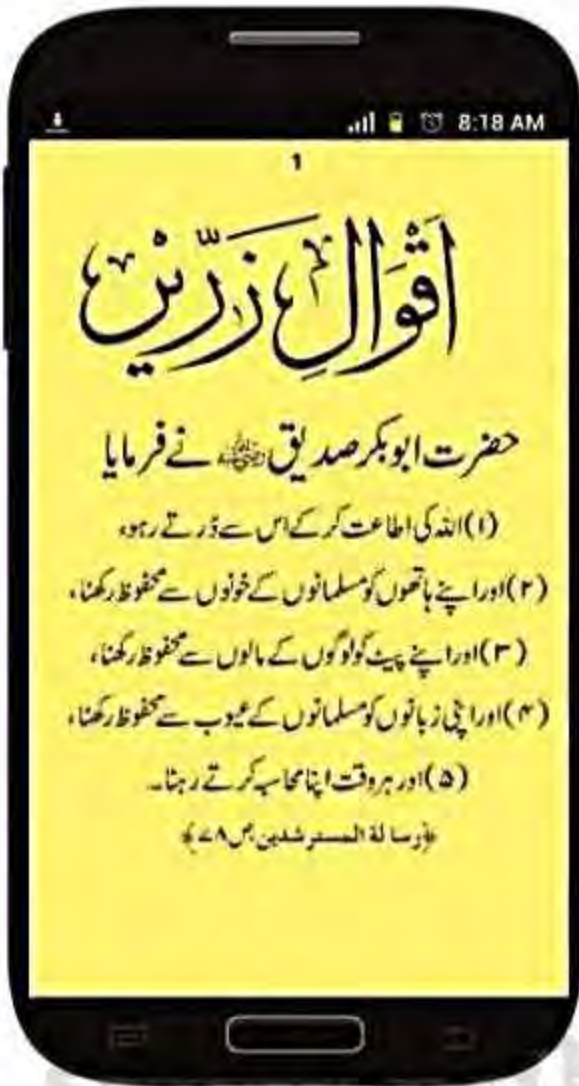 8:18 AM
1
اَقْوَالِ زَرِّیں
حضرت ابوبکر صدیق رضی اللہ عنہ نے فرمایا
(۱) اللہ کی اطاعت کر کے اس سے ڈرتے رہو،
(۲) اور اپنے ہاتھوں کو مسلمانوں کے خونوں سے محفوظ رکھنا،
(۳) اور اپنے پیٹ کو لوگوں کے مالوں سے محفوظ رکھنا،
(۴) اور اپنی زبانوں کو مسلمانوں کے عیوب سے محفوظ رکھنا،
(۵) اور ہر وقت اپنا محاسبہ کرتے رہنا۔
﴿رسالة المسترشدين ص ۷۸﴾